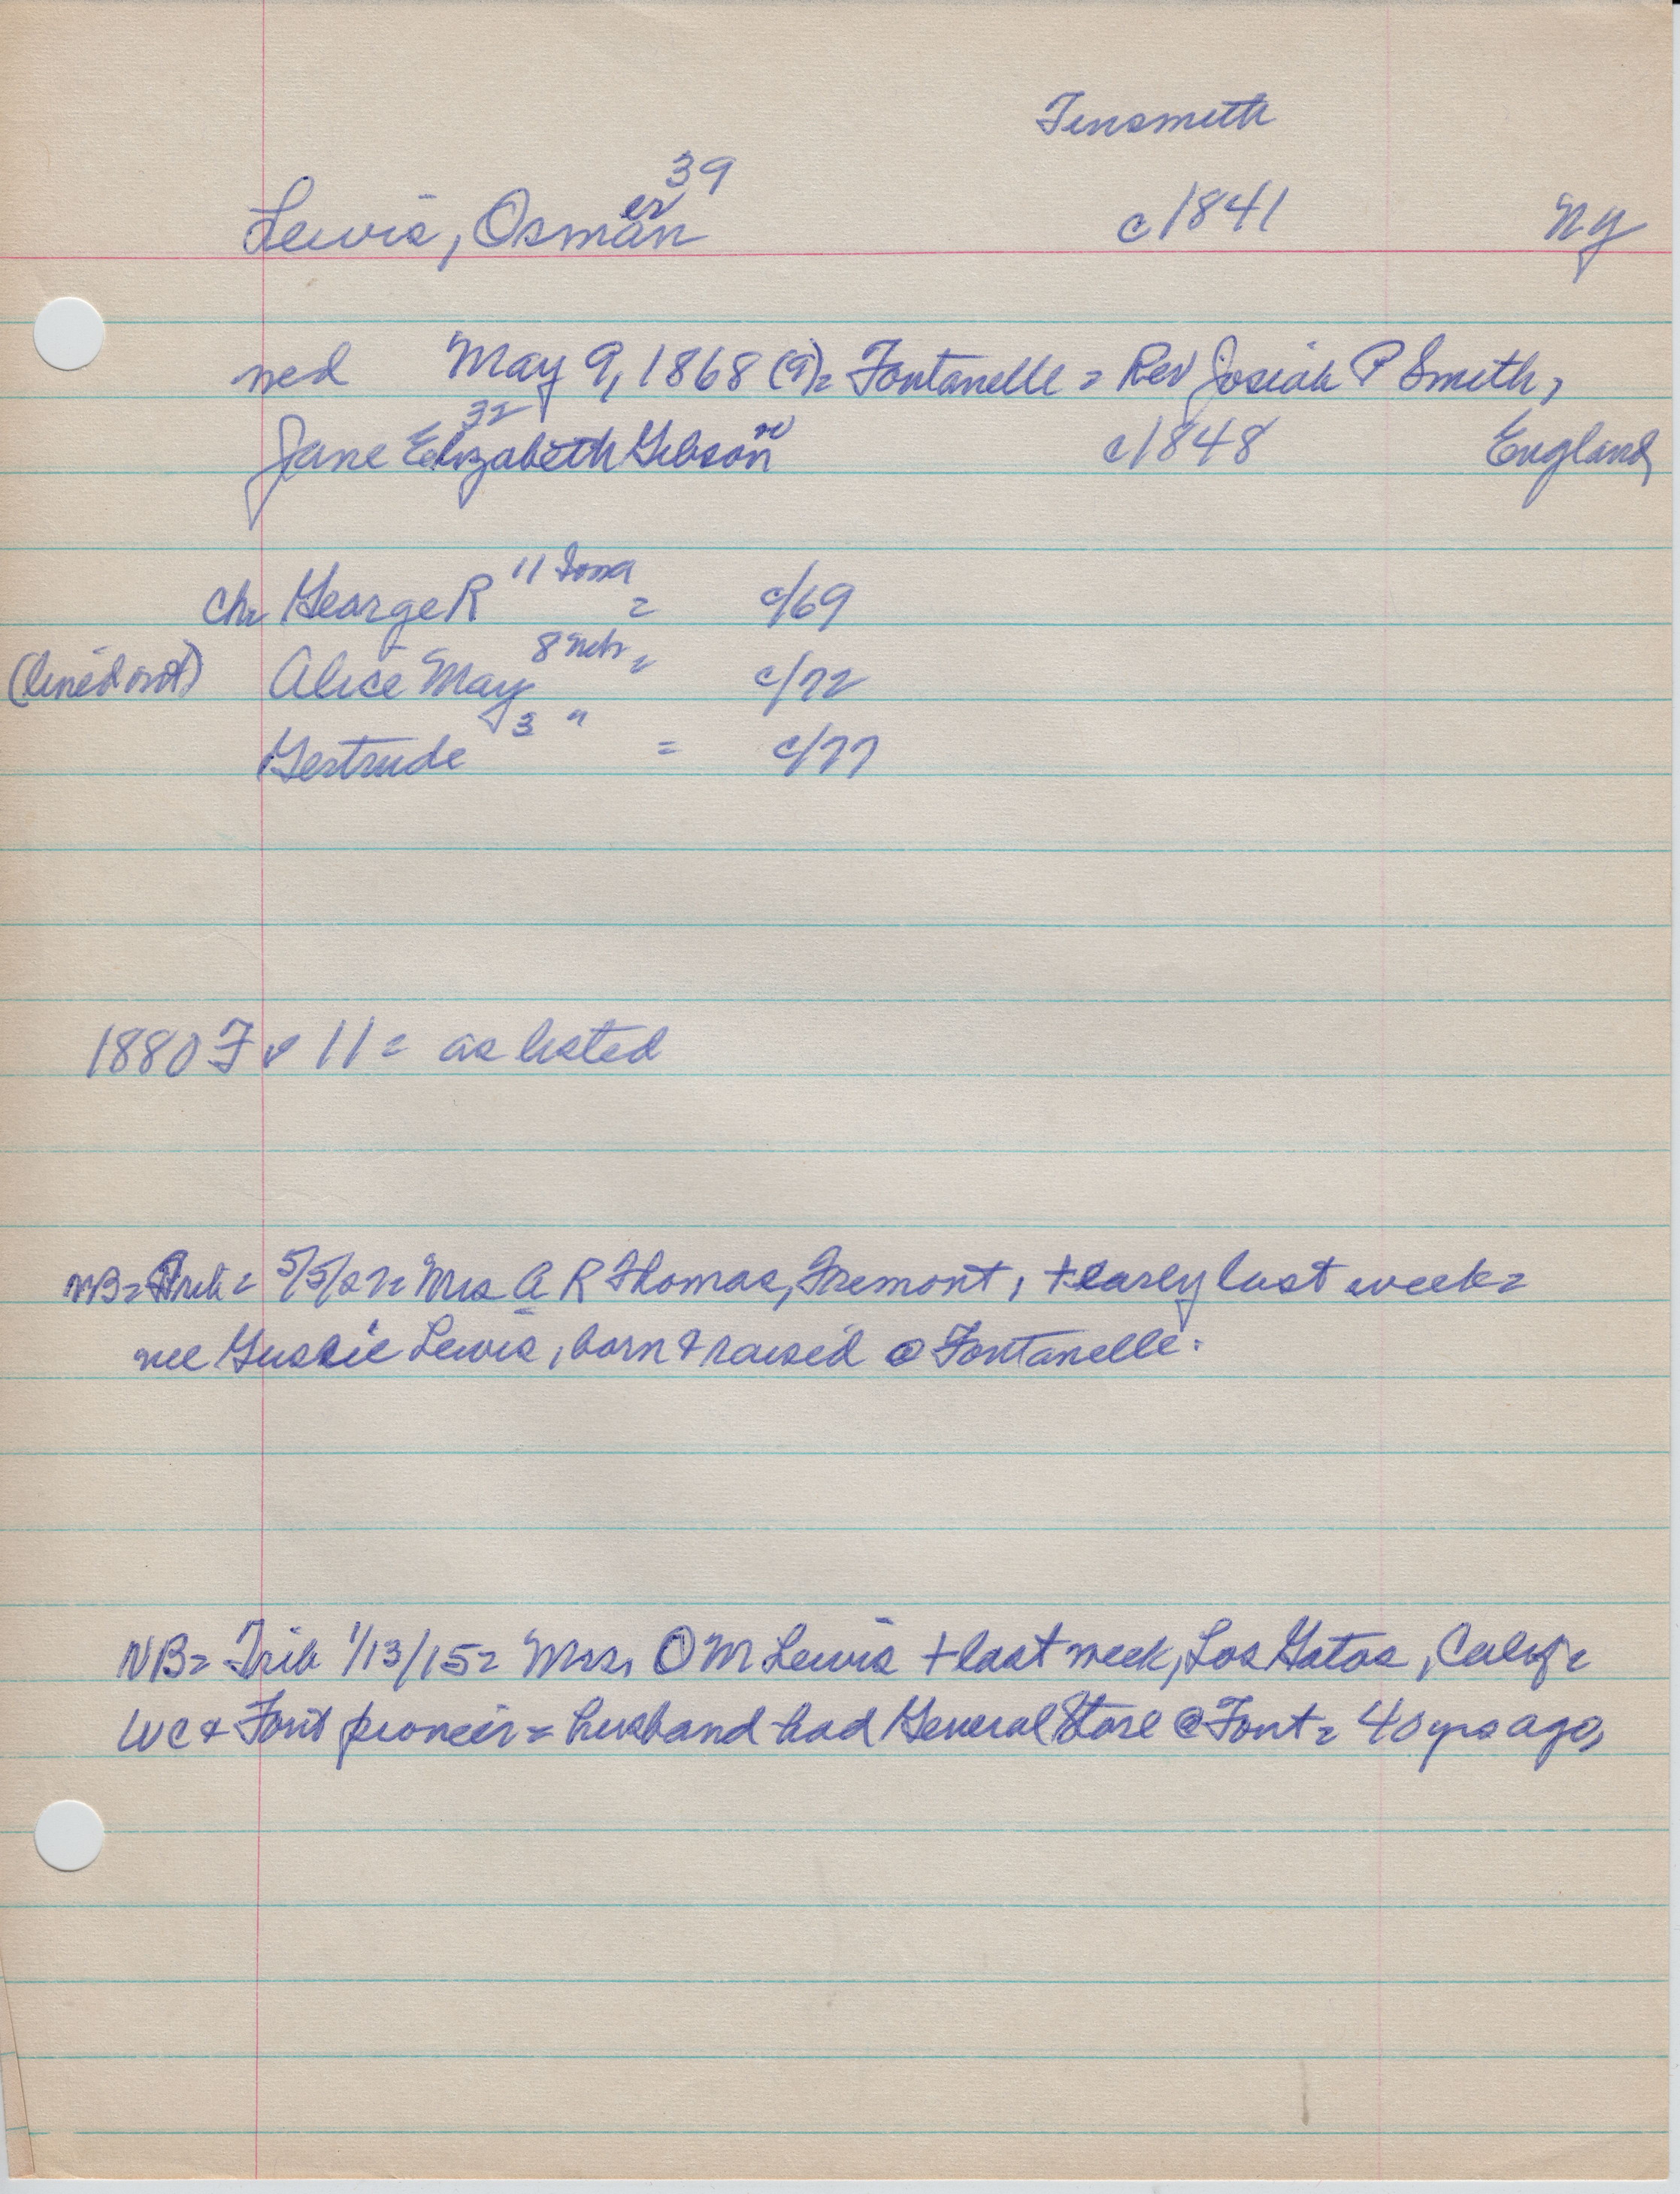 Tinsmith
39
er
Lewis, Osman c1841 NY
med May 9, 1868 (9)= Fontanelle = Rev Josiah P Smith,
32 re
Jane Elizabeth Gibson c1848 England
11 Iowa
Ch= George R = c/69
8 Neb =
(lined out) Alice May c/72
3 "
Gertrude = c/77
1880 F v 11 = as listed
NB= Trib = Mrs A R Thomas, Fremont, + early last week =
nee Gussie Lewis, born & raised @ Fontanelle.
NB= Trib 1/13/15= Mrs. O M Lewis + last week, Los Gatos, Calif =
WC & Font pioneer = husband had General Store @ Font = 40 yrs ago,